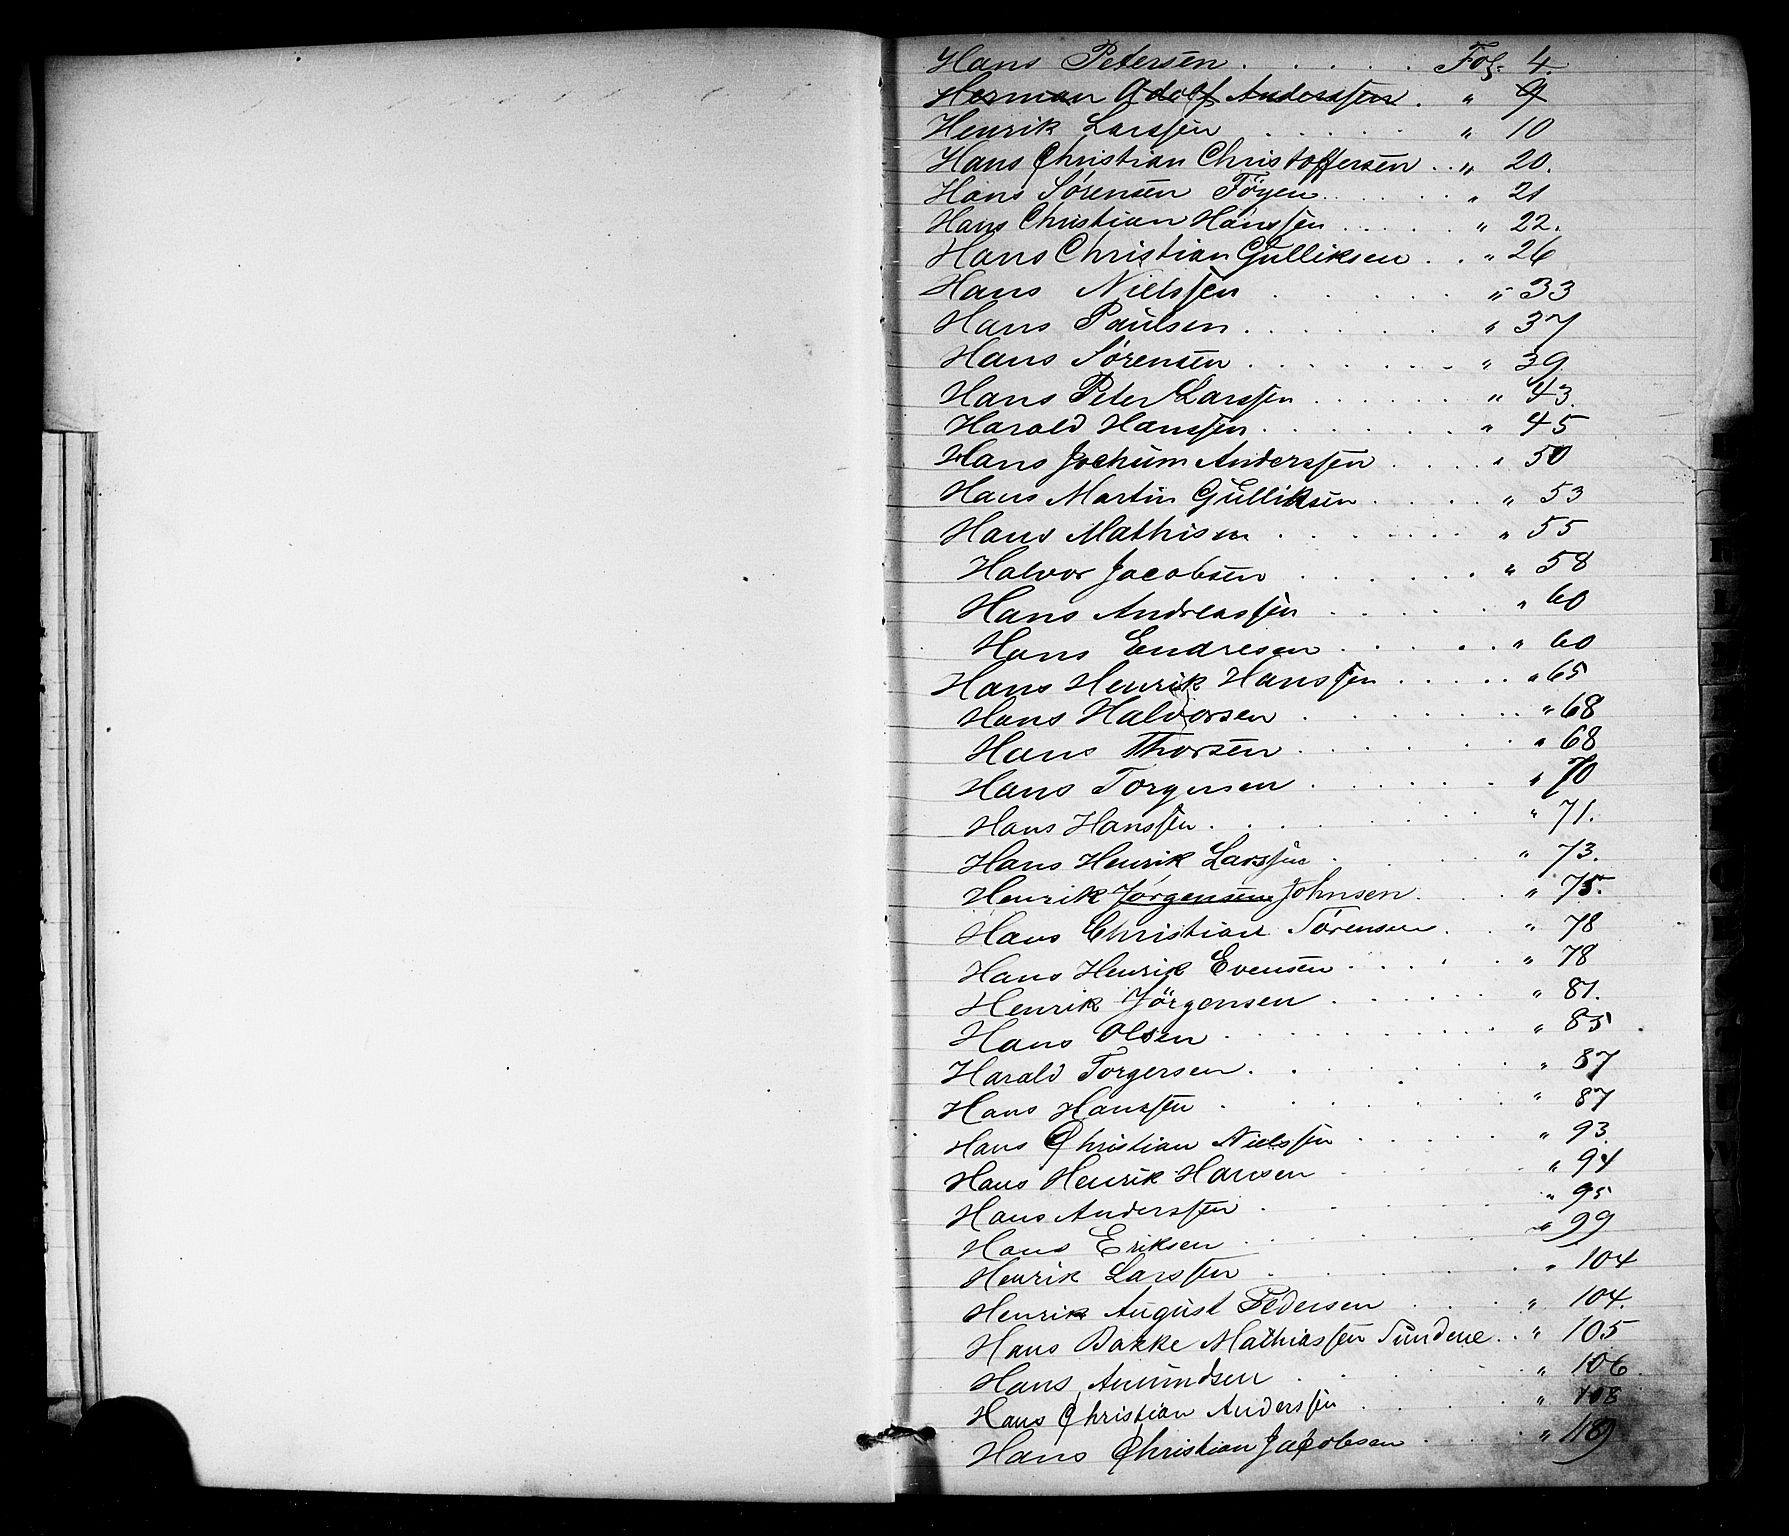 Hans Petersen . . . . . Fol. 4.
Herman Adolf Anderssen . " 9
Henrik Larssen . . . . . " 10
Hans Christian Christoffersen . . " 20.
Hans Sørensen Föyen . . . . . " 21
Hans Christian Hanssen . . . . . " 22.
Hans Christian Gulliksen . . " 26
Hans Nielssen . . . . . " 33
Hans Paulsen . . . . . " 37
Hans Sørensen . . . . . " 39
Hans Peter Larssen . . . . . " 43.
Harald Hanssen . . . . . " 45
Hans Jochum Anderssen . . . . " 50
Hans Martin Gulliksen . . . . " 53
Hans Mathisen . . . . . " 55
Halvor Jacobsen . . . . . " 58
Hans Andreassen . . . . . " 60
Hans Endresen . . . . . " 60
Hans Henrik Hanssen . . . . . " 65
Hans Halvorsen . . . . . " 68
Hans Thorsen . . . . . " 68
Hans Torgersen . . . . . " 70
Hans Hanssen . . . . . " 71.
Hans Henrik Larssen . . . . " 73.
Henrik Jørgensen Johnsen . . . " 75.
Hans Christian Sørensen . . " 78
Hans Henrik Evensen . . . . . " 78
Henrik Jörgensen . . . . . " 81.
Hans Olsen . . . . . " 85
Harald Torgersen . . . . . " 87
Hans Hanssen . . . . . " 87
Hans Christian Nielssen . . . . . " 93.
Hans Henrik Hansen . . . . . " 94
Hans Anderssen . . . . . " 95
Hans Eriksen . . . . . " 99
Henrik Larssen . . . . . " 104
Henrik August Pedersen . . . " 104.
Hans Bakke Mathiassen Sundene . . " 105
Hans Amundsen . . . . . " 106.
Hans Christian Anderssen . . . . " 108
Hans Christian Jacobsen . . . . "